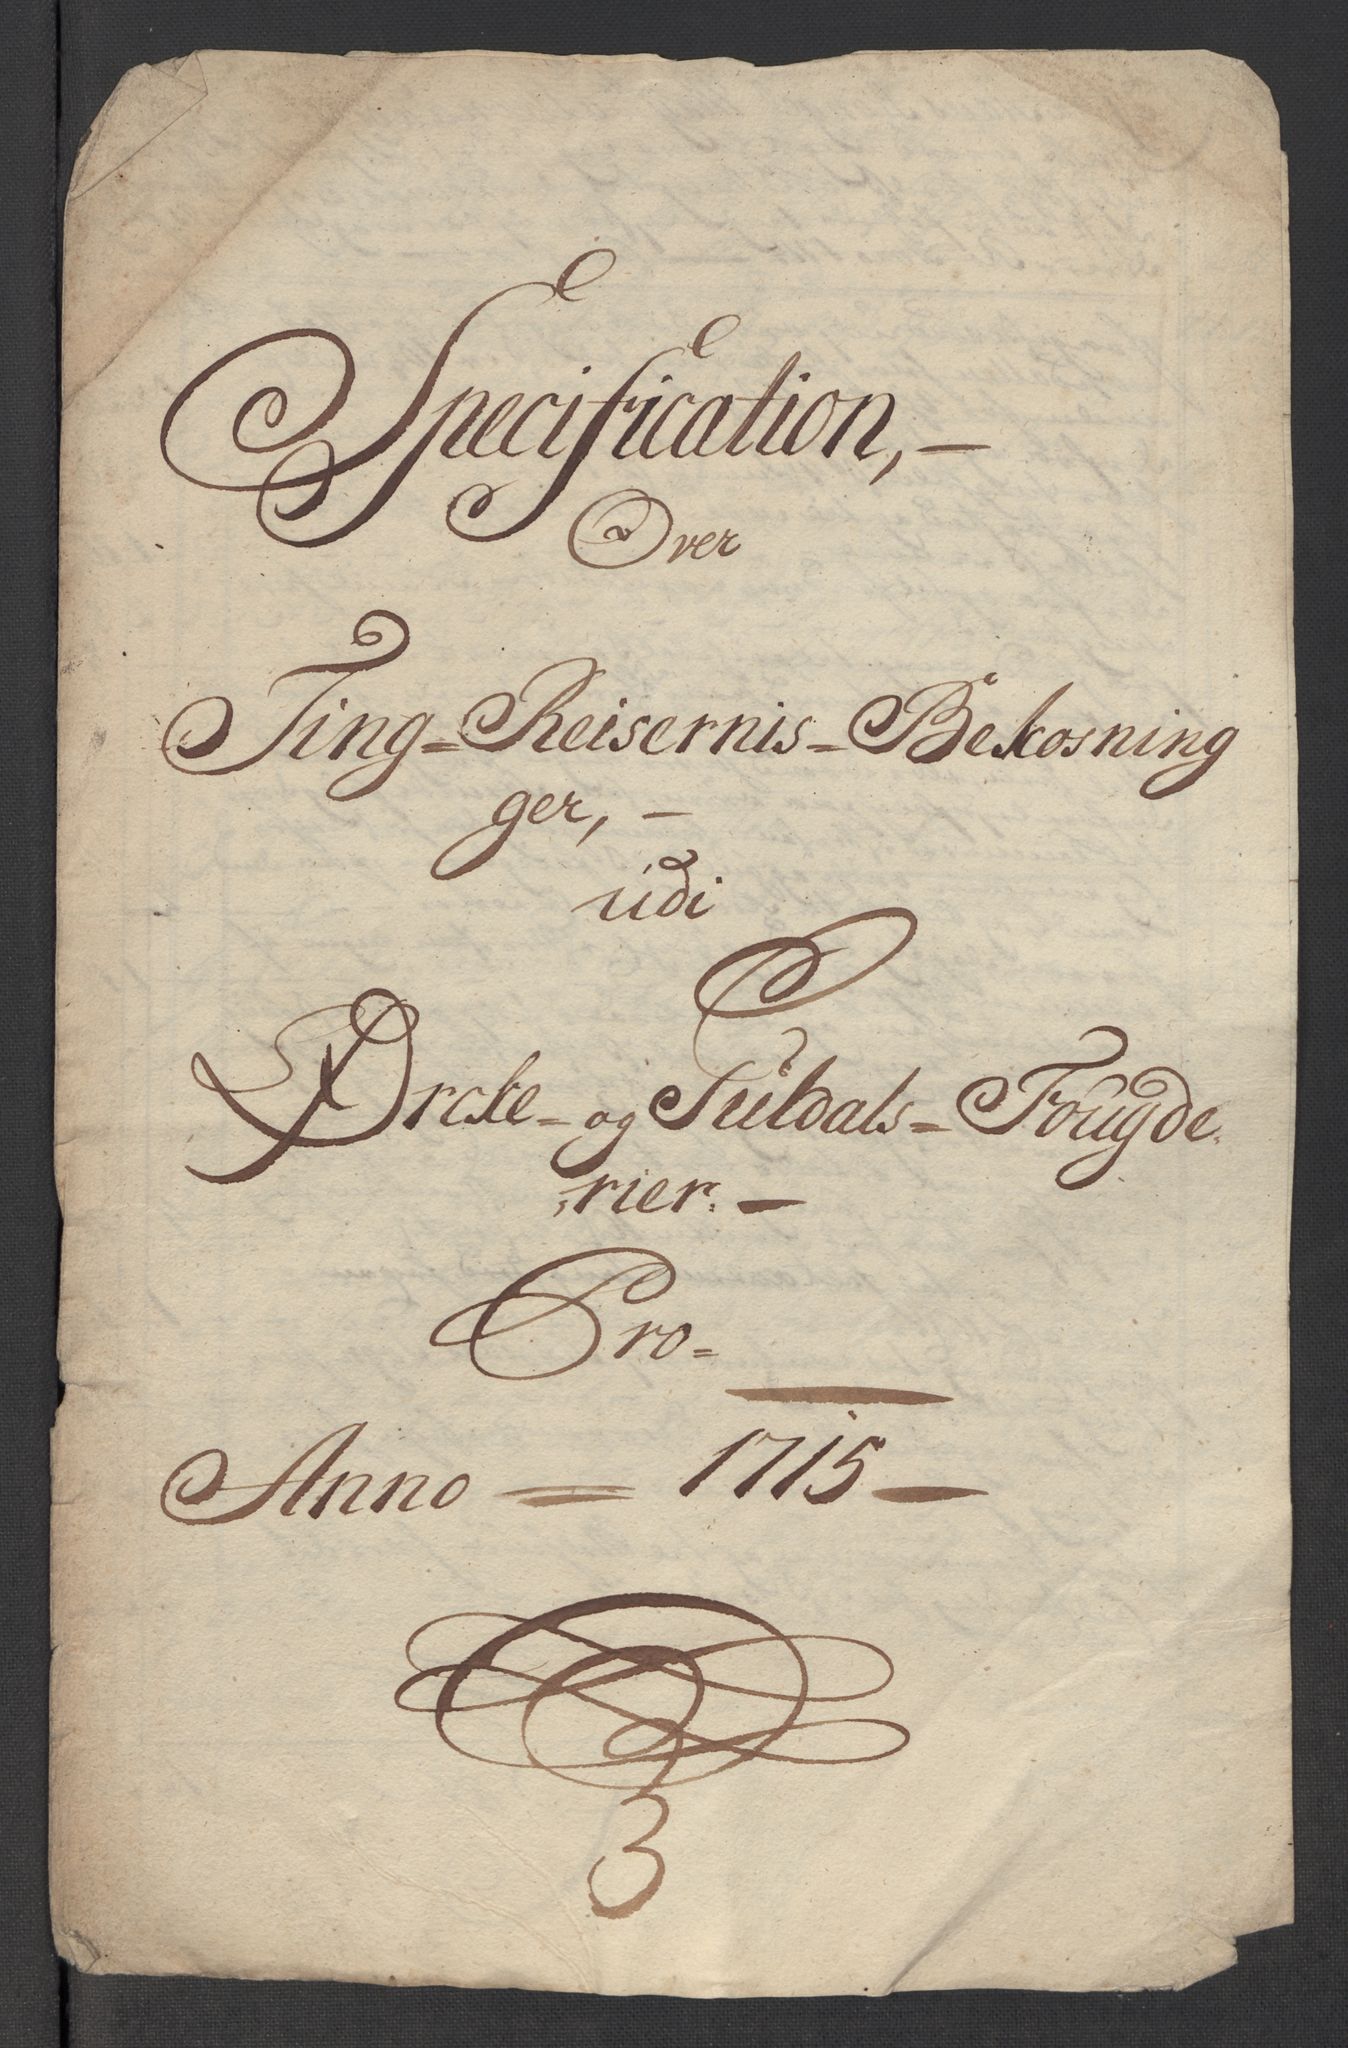 Specification,—
Over
Ting=Reisernis=Bekosning
ger,—
udi
Örcke=og Guldals=Fougde:
:rier:—
Pro=
Anno = 1715—
3